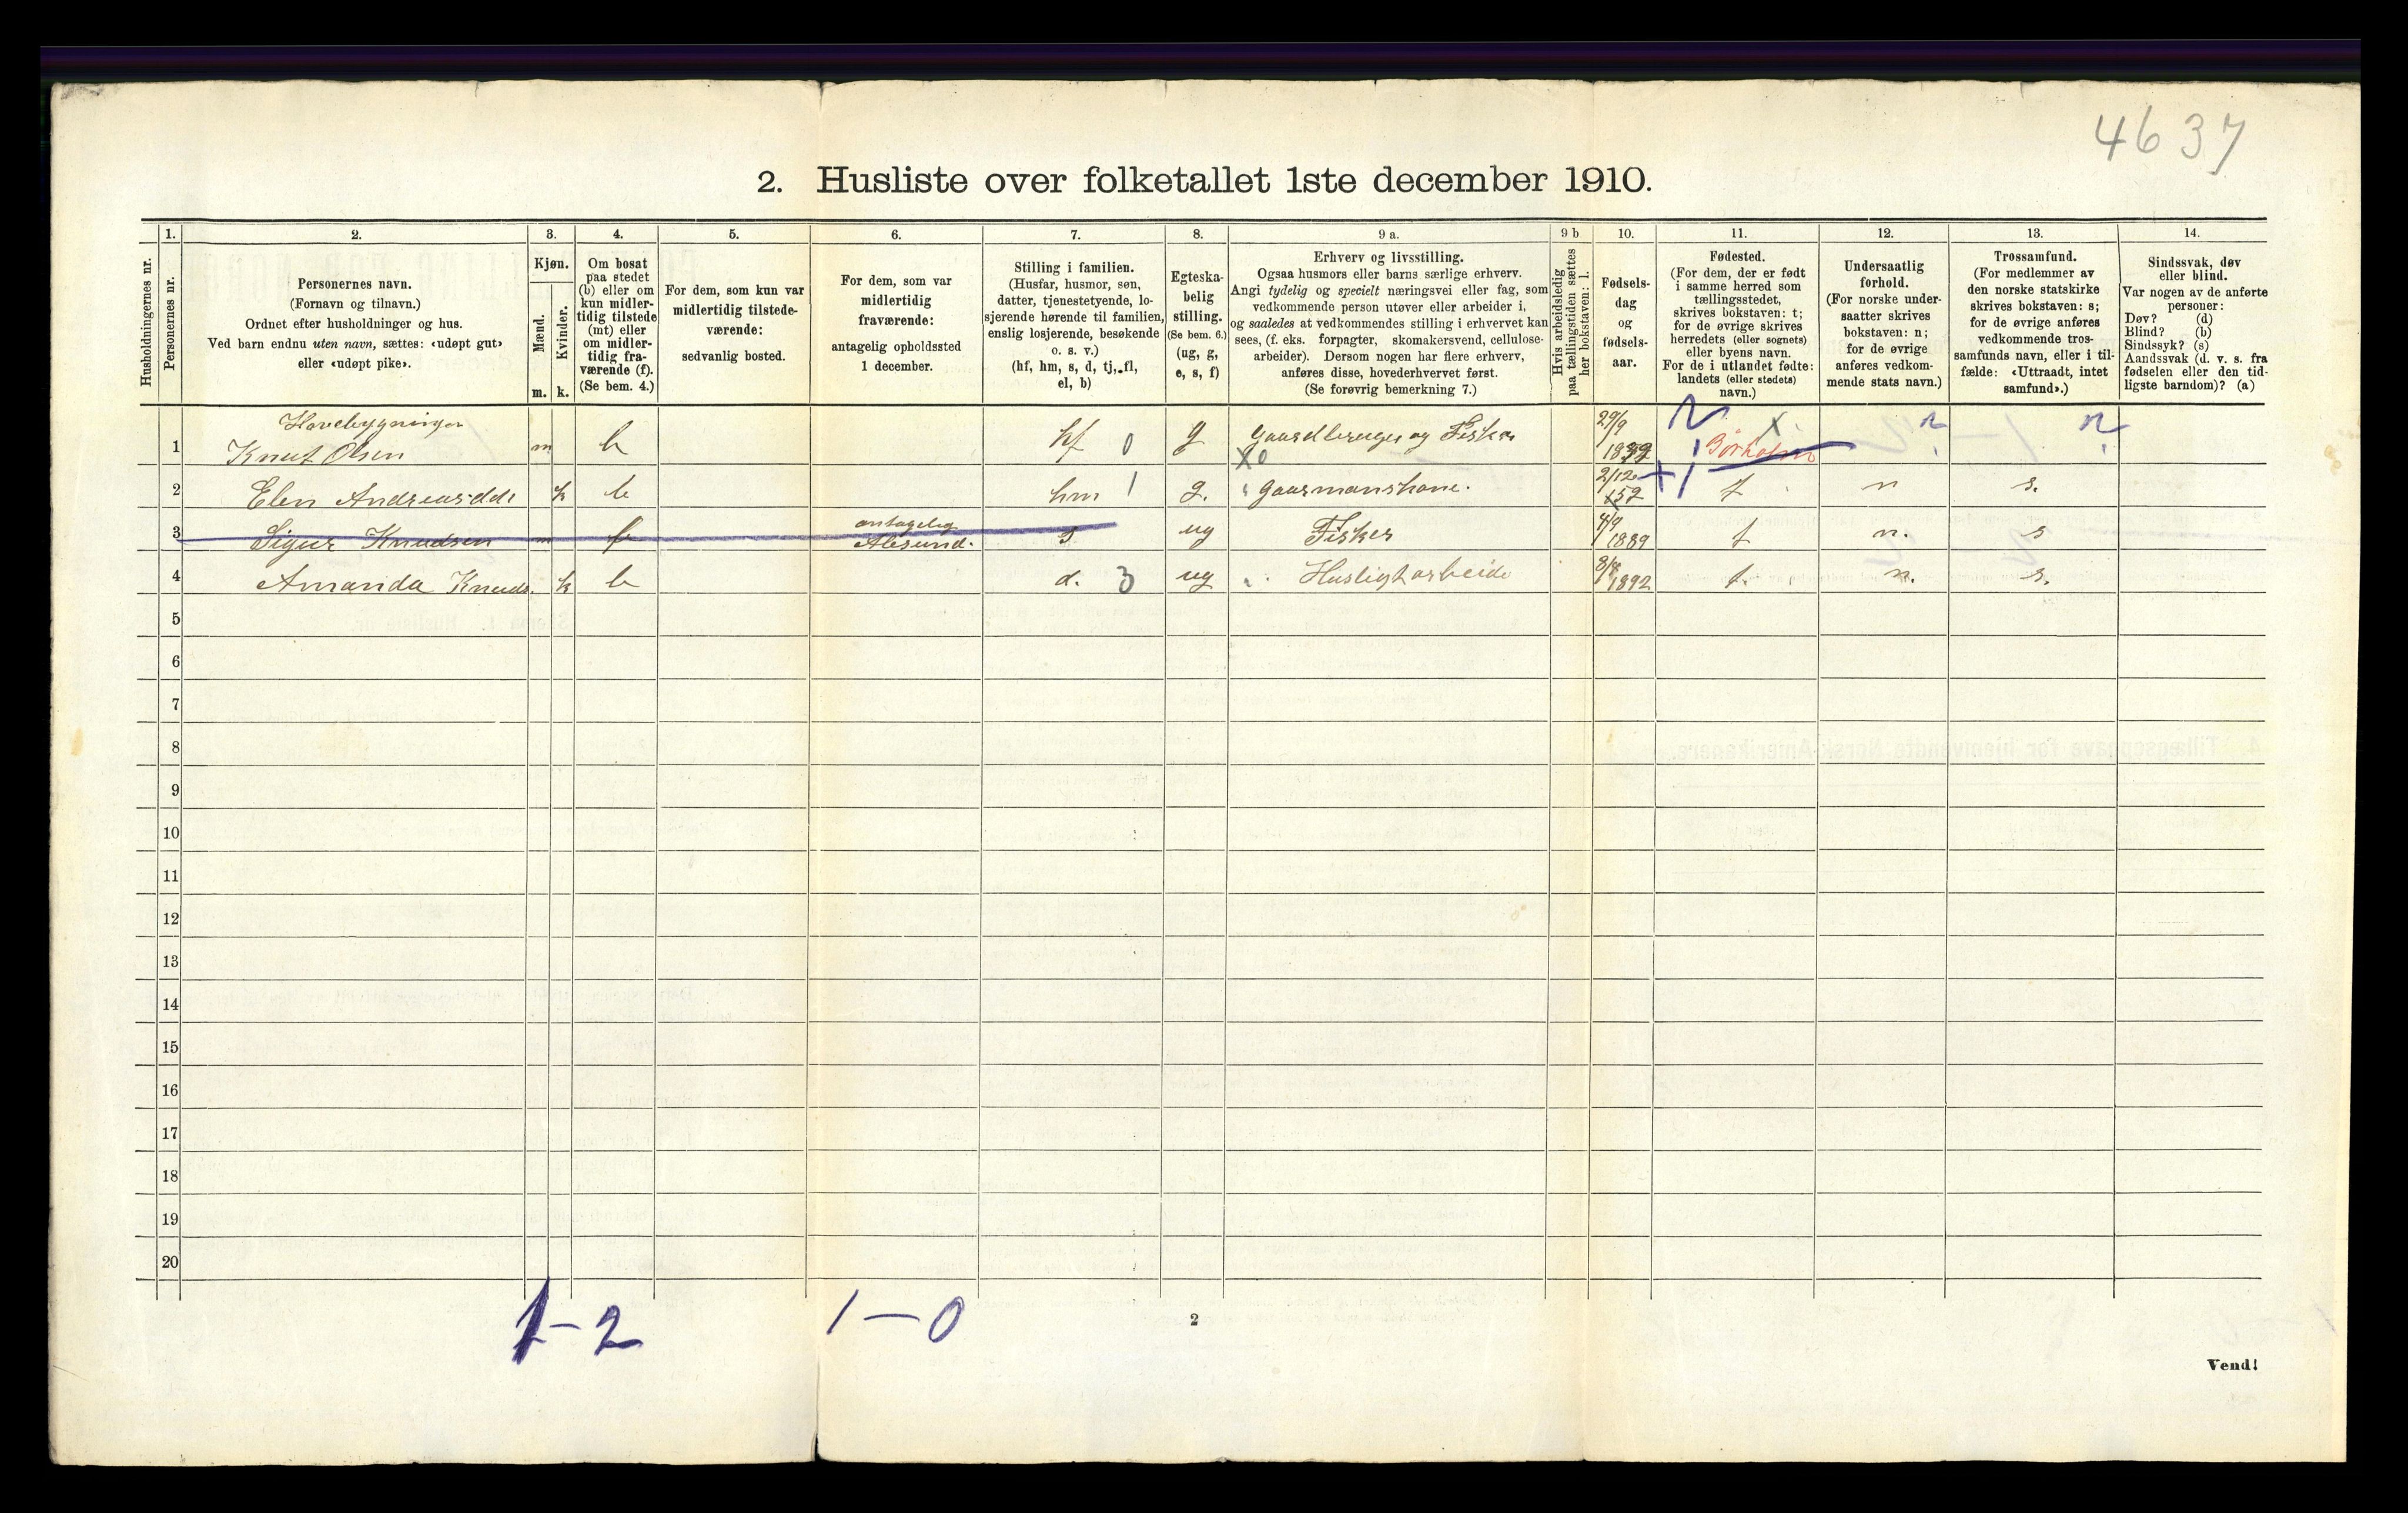 4637
2. Husliste over folketallet 1ste december 1910.
Husholdningernes nr.
1.
Personernes nr.
2.
Personernes navn.
(Fornavn og tilnavn.)
Ordnet efter husholdninger og hus.
Ved barn endnu uten navn, sættes: «udøpt gut»
eller «udøpt pike».
3.
Kjøn.
Mænd.
Kvinder.
m. k.
4.
Om bosat
paa stedet
(b) eller om
kun midler-
tidig tilstede
(mt) eller
om midler-
tidig fra-
værende (f).
(Se bem. 4.)
5.
For dem, som kun var
midlertidig tilstede-
værende:
sedvanlig bosted.
6.
For dem, som var
midlertidig
fraværende:
antagelig opholdssted
1 december.
7.
Stilling i familien.
(Husfar, husmor, søn,
datter, tjenestetyende, lo-
sjerende hørende til familien,
enslig losjerende, besøkende
o. s. v.)
(hf, hm, s, d, tj, fl,
el, b)
8.
Egteska-
belig
stilling.
(Se bem. 6.)
(ug, g,
e, s, f)
9 a.
Erhverv og livsstilling.
Ogsaa husmors eller barns særlige erhverv.
Angi tydelig og specielt næringsvei eller fag, som
vedkommende person utøver eller arbeider i,
og saaledes at vedkommendes stilling i erhvervet kan
sees, (f. eks. forpagter, skomakersvend, cellulose-
arbeider). Dersom nogen har flere erhverv,
anføres disse, hovederhvervet først.
(Se forøvrig bemerkning 7.)
9 b
Hvis arbeidsledig
paa tællingstiden sættes
her bokstaven: l.
10.
Fødsels-
dag
og
fødsels-
aar.
11.
Fødested.
(For dem, der er født
i samme herred som
tællingsstedet,
skrives bokstaven: t;
for de øvrige skrives
herredets (eller sognets)
eller byens navn.
For de i utlandet fødte:
landets (eller stedets)
navn.)
12.
Undersaatlig
forhold.
(For norske under-
saatter skrives
bokstaven: n;
for de øvrige
anføres vedkom-
mende stats navn.)
13.
Trossamfund.
(For medlemmer av
den norske statskirke
skrives bokstaven: s;
for de øvrige anføres
vedkommende tros-
samfunds navn, eller i til-
fælde: «Uttraadt, intet
samfund».)
14.
Sindssvak, døv
eller blind.
Var nogen av de anførte
personer:
Døv? (d)
Blind? (b)
Sindssyk? (s)
Aandssvak (d. v. s. fra
fødselen eller den tid-
ligste barndom)? (a)
Hovebygningen
1 Knut Olsen m b hf 0 g Gaardbruger og Fisker 29/9
2 Elen Andreasdd k b hm 1 g. Gaarmanskone. 2/12 52 t n s.
3 Sigur Knudsen m f antagelig Alesund. s ug Fisker 4/9 1889 t n. s
4 Amanda Knuds. k b d. 3 ug Husligt arbeide 1892 t. n. s.
5
6
7
8
9
10
11
12
13
14
15
16
17
18
19
20
1-2 1-0
2
Vend!